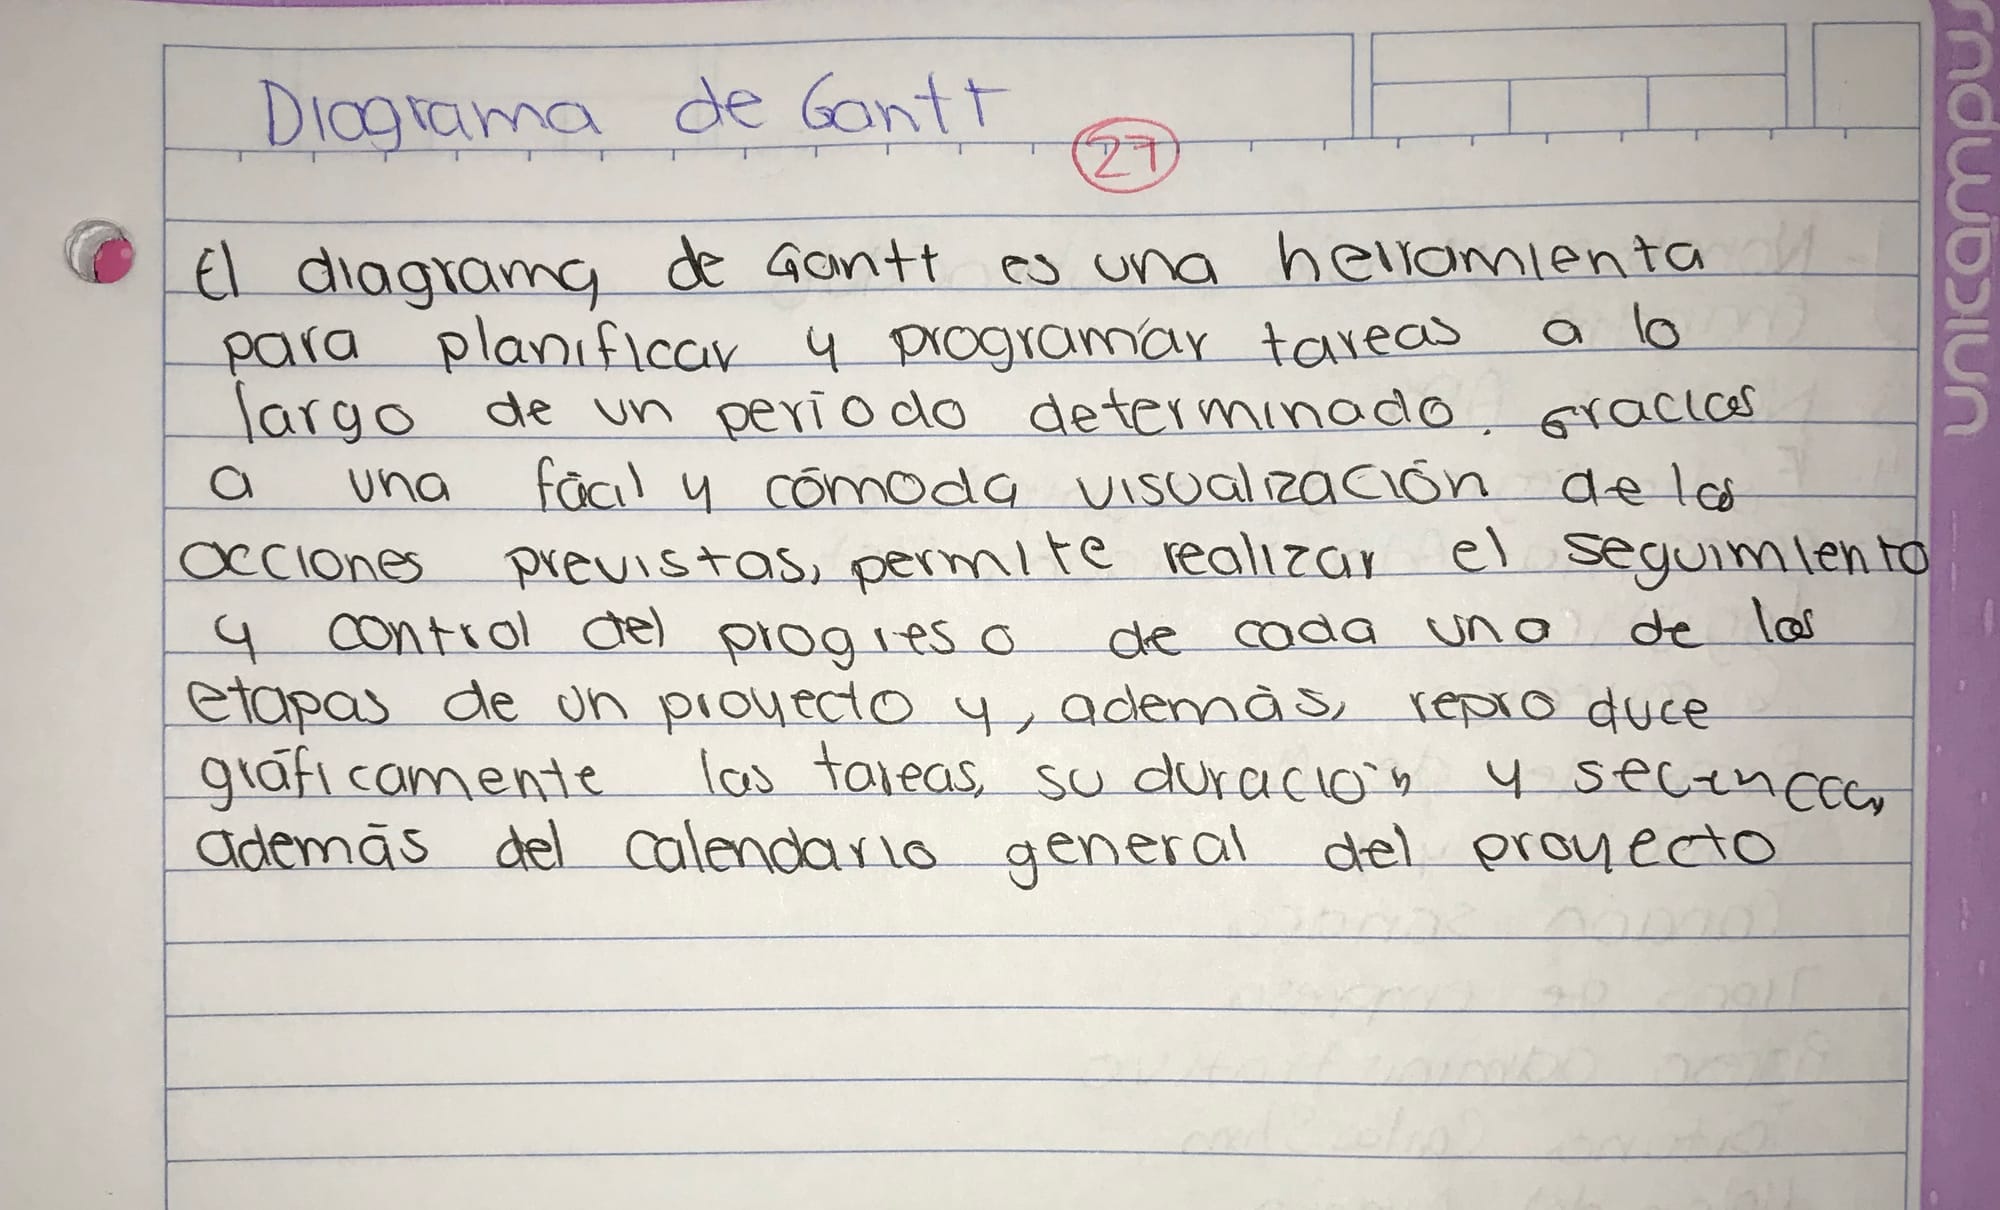 Diagrama de Gantt
27
El diagrama de Gantt es una herramienta
para planificar y programar tareas a lo
largo de un periodo determinado. Gracias
a una fácil y cómoda visualización de las
acciones previstas, permite realizar el seguimiento
y control del progreso de cada una de las
etapas de un proyecto y, además, reproduce
gráficamente las tareas, su duración y
además del calendario general del proyecto
unicampus